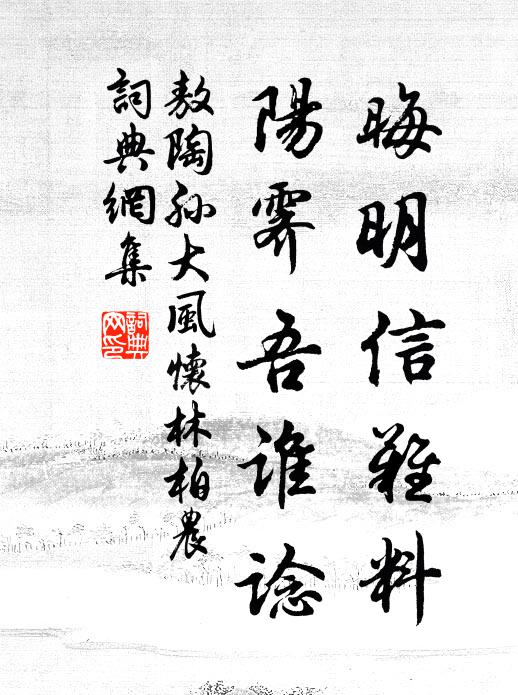 晦明信難料
陽霽吾誰諗
敖陶孫大風懷林柏農
詞典網集
詞典
網印